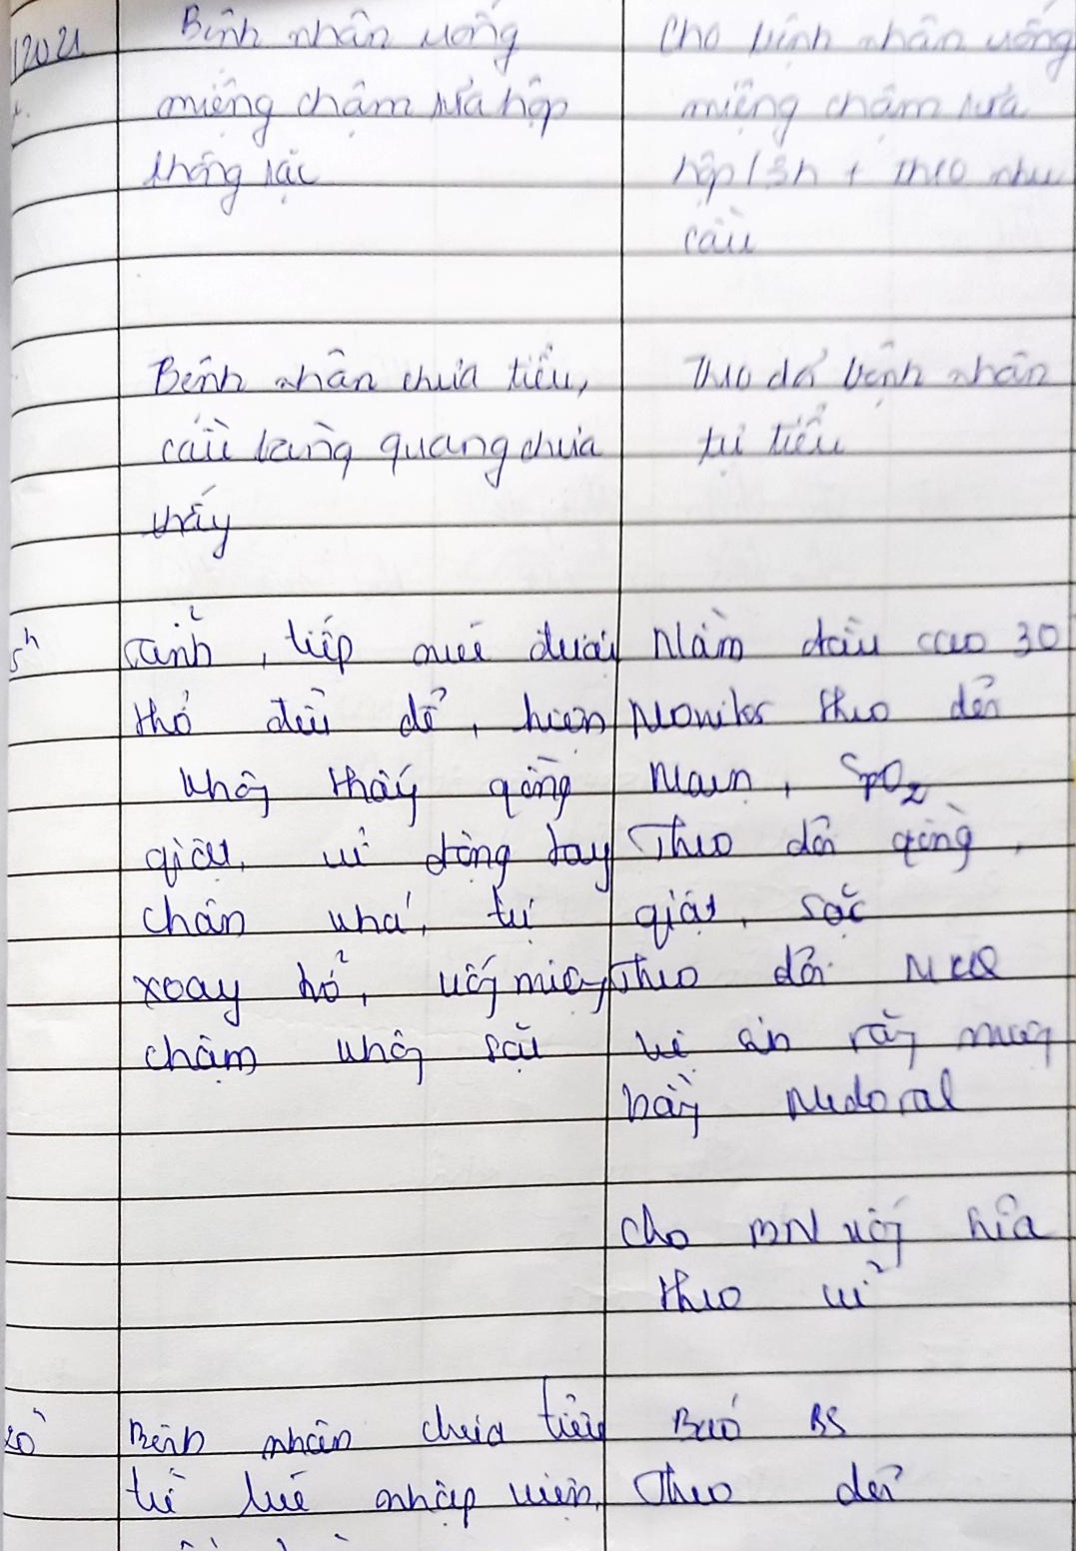 /2021
Bệnh nhân uống
miệng chậm sữa hộp
không sặc
Cho bệnh nhân uống
miệng chậm sữa
hộp /3h + theo nhu
cầu
Bệnh nhân chưa tiểu,
cầu bàng quang chưa
thấy
Theo dõi bệnh nhân
tự tiểu
5h
Tỉnh, tiếp xúc được
thở đều dễ, hiện
không thấy gồng
giật, cử động tay
chân khá, tự
xoay trở, uống miệng
chậm không sặc
Nằm đầu cao 30
Monitor theo dõi
Mạch, SpO2
Theo dõi gồng,
giật, sặc
Theo dõi NKQ
Vệ sinh răng miệng
bằng Medoral
Cho BN uống sữa
theo cử
Bệnh nhân chưa tiểu
từ lúc nhập viện,
Báo BS
Theo dõi